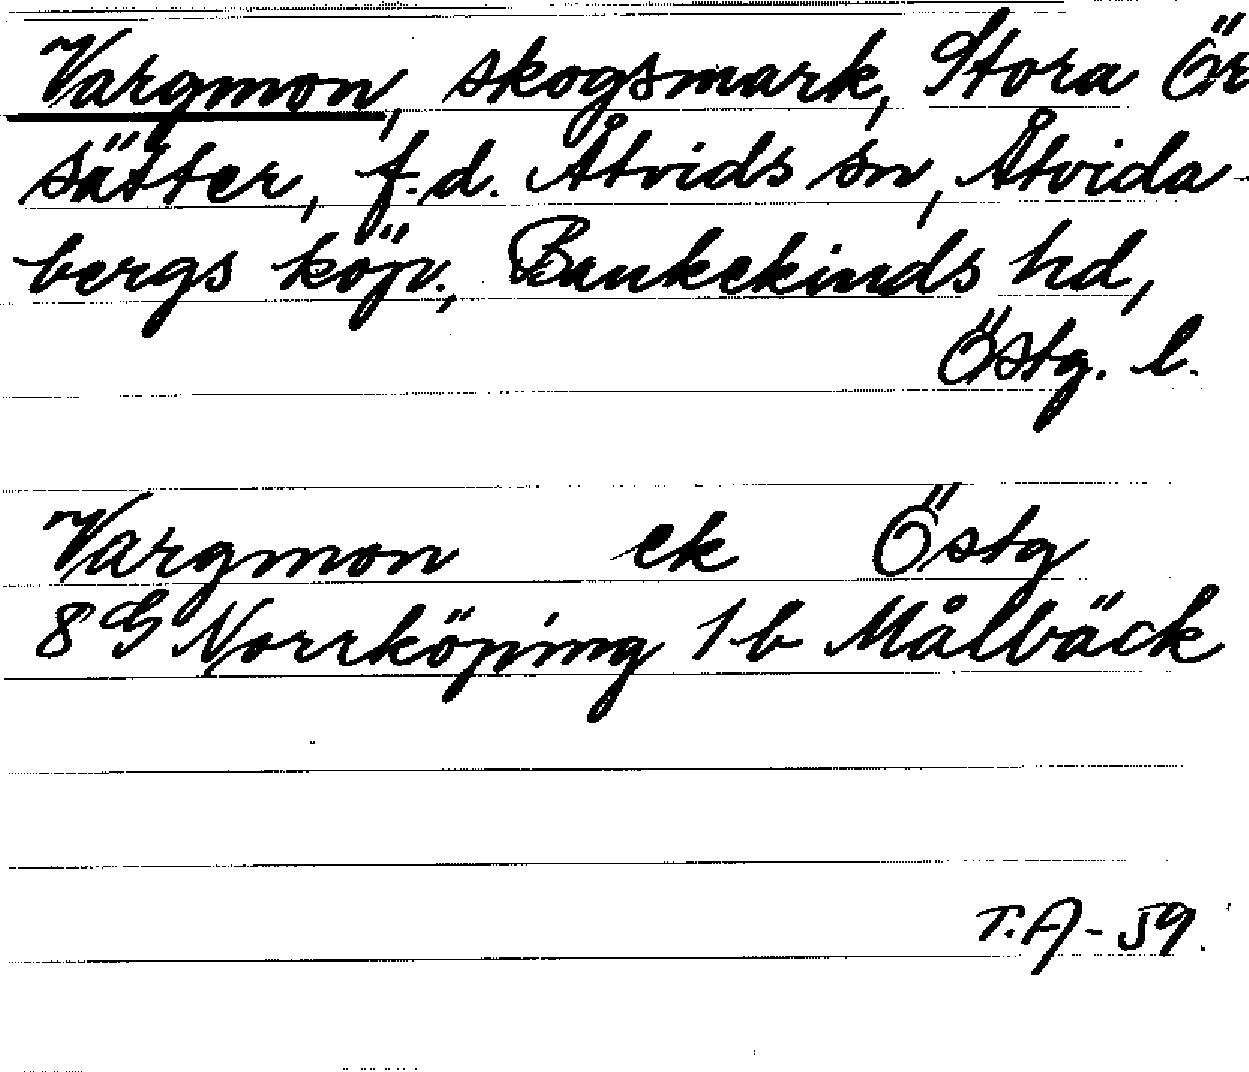 Vargmon, skogsmark, Stora Ör
sätter, f.d. Åtvids sn, Åtvida-
bergs köp., Bankekinds hd,
Östg. l.
Vargmon ek Östg
8 G Norrköping 1 b Målbäck
T.A - 59.